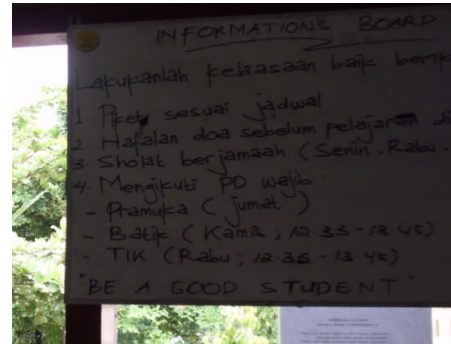 INFORMATIONS BOARD
Lakukanlah kebiasaan baik
1 Piket sesuai jadwal
2 Hafalan doa sebelum pelajaran
3 Sholat berjamaah (Senin, Rabu,
4. Mengikuti PD wajib :
- Pramuka ( jumat )
- Batik ( Kamis ; 12.35 - 13.45)
- TIK (Rabu ; 12.35 - 13.45)
"BE A GOOD STUDENT"